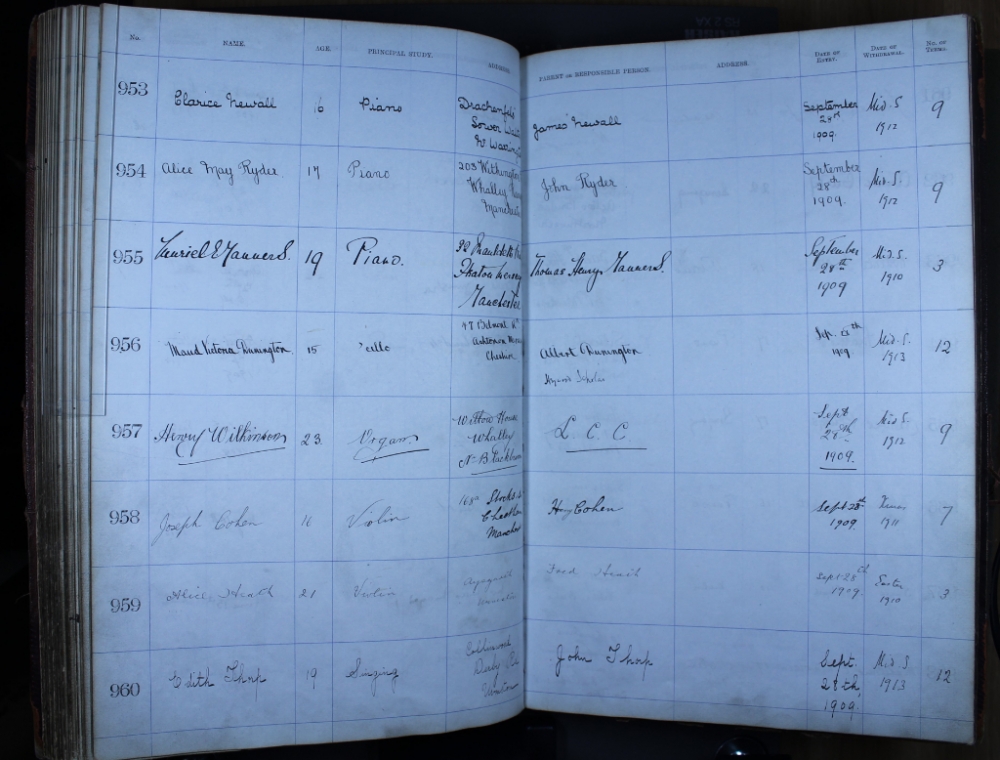 No. NAME. AGE PRINCIPAL STUDY. ADDRESS. PARENT OR RESPONSIBLE PERSON. ADDRESS. DATE OF ENTRY. DATE OF WITHDRAWAL. NO. OF TERMS.
953 Clarice Newall Piano James Newall September 28th 1909. Mid. S 1912 9
954 Alice May Ryder 17 Piano 203 Whalley Manchester John Ryder September 28th 1909. Mid. S. 1912 9
955 Manners. 19 Piano. Manchester Thomas Henry Manners. September 28th 1909 Mid. S. 1910 3
956 Maud Victoria Dunington 15 'cello 47 Belmont Rd Ashton on Cheshire Albert Dunington Scholar Sep. 1909 Mid. S. 1913 12
957 Henry Wilkinson 23 Organ Willow House Whalley Nr Blackburn L. C. C. Sept 28th 1909. Mid S. 1912 9
958 Joseph Cohen 16 Violin Stocks Cheetham Manchester Hy Cohen Sept 28th 1909 Xmas 1911 7
959 Alice Heath 21 Violin Fred Heath Sept 28th 1909 Easter 1910 3
960 Edith Thorp 19 Singing John Thorp Sept. 28th, 1909. Mid. S 1913 12